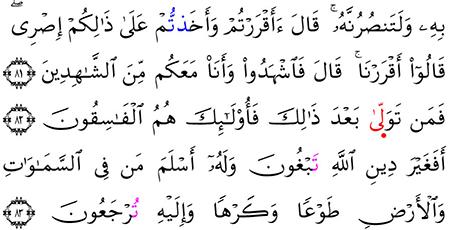 بِهِۦ وَلَتَنصُرُنَّهُۥ ۚ قَالَ ءَأَقْرَرْتُمْ وَأَخَذتُّمْ عَلَىٰ ذَٰلِكُمْ إِصْرِى
قَالُوٓا۟ أَقْرَرْنَا ۚ قَالَ فَٱشْهَدُوا۟ وَأَنَا۠ مَعَكُم مِّنَ ٱلشَّٰهِدِينَ ٨١
فَمَن تَوَلَّىٰ بَعْدَ ذَٰلِكَ فَأُو۟لَٰٓئِكَ هُمُ ٱلْفَٰسِقُونَ ٨٢
أَفَغَيْرَ دِينِ ٱللَّهِ تَبْغُونَ وَلَهُۥٓ أَسْلَمَ مَن فِى ٱلسَّمَٰوَٰتِ
وَٱلْأَرْضِ طَوْعًا وَكَرْهًا وَإِلَيْهِ تُرْجَعُونَ ٨٣